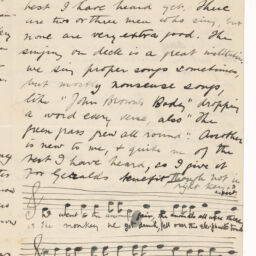 best I have heard yet. There
are two or three men who sing, but
none are very extra good. The
singing on deck is a great institution,
we sing proper songs sometimes
but mostly nonsense songs,
like "John Brown's Body" dropping
a word every verse, also "The
green grass grew all round". Another
is new to me, & quite one of the
best I have heard, so I give it
for Gerald's benefit, though not in
right key, I
expect.
We went to the animal fair, the animals all were there
the monkey he got drunk, fell over the elephant's trunk